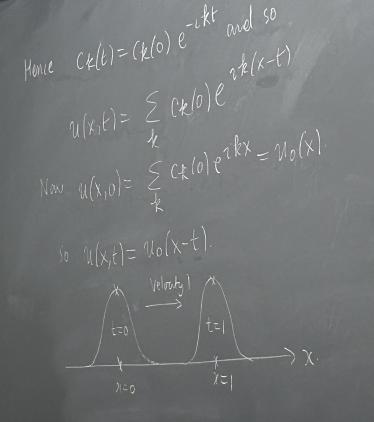 Hence Ck(t)=Ck(0) e^{-ikt} and so
u(x,t)= Σ_k Ck(0) e^{ik(x-t)}
Now u(x,0)= Σ_k Ck(0) e^{ikx} = u₀(x).
So u(x,t)= u₀(x-t).
Velocity 1
t=0 t=1
x.
x=0 x=1